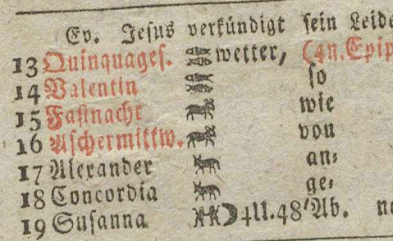 Ev. Jesus verkündigt sein Leide
13 Quinquages. wetter, (4n. Epip
14 Valentin so
15 Fastnacht wie
16 Aschermittw. von
17 Alexander an⸗
18 Concordia ge⸗
19 Susanna 4U. 48'Ab. na